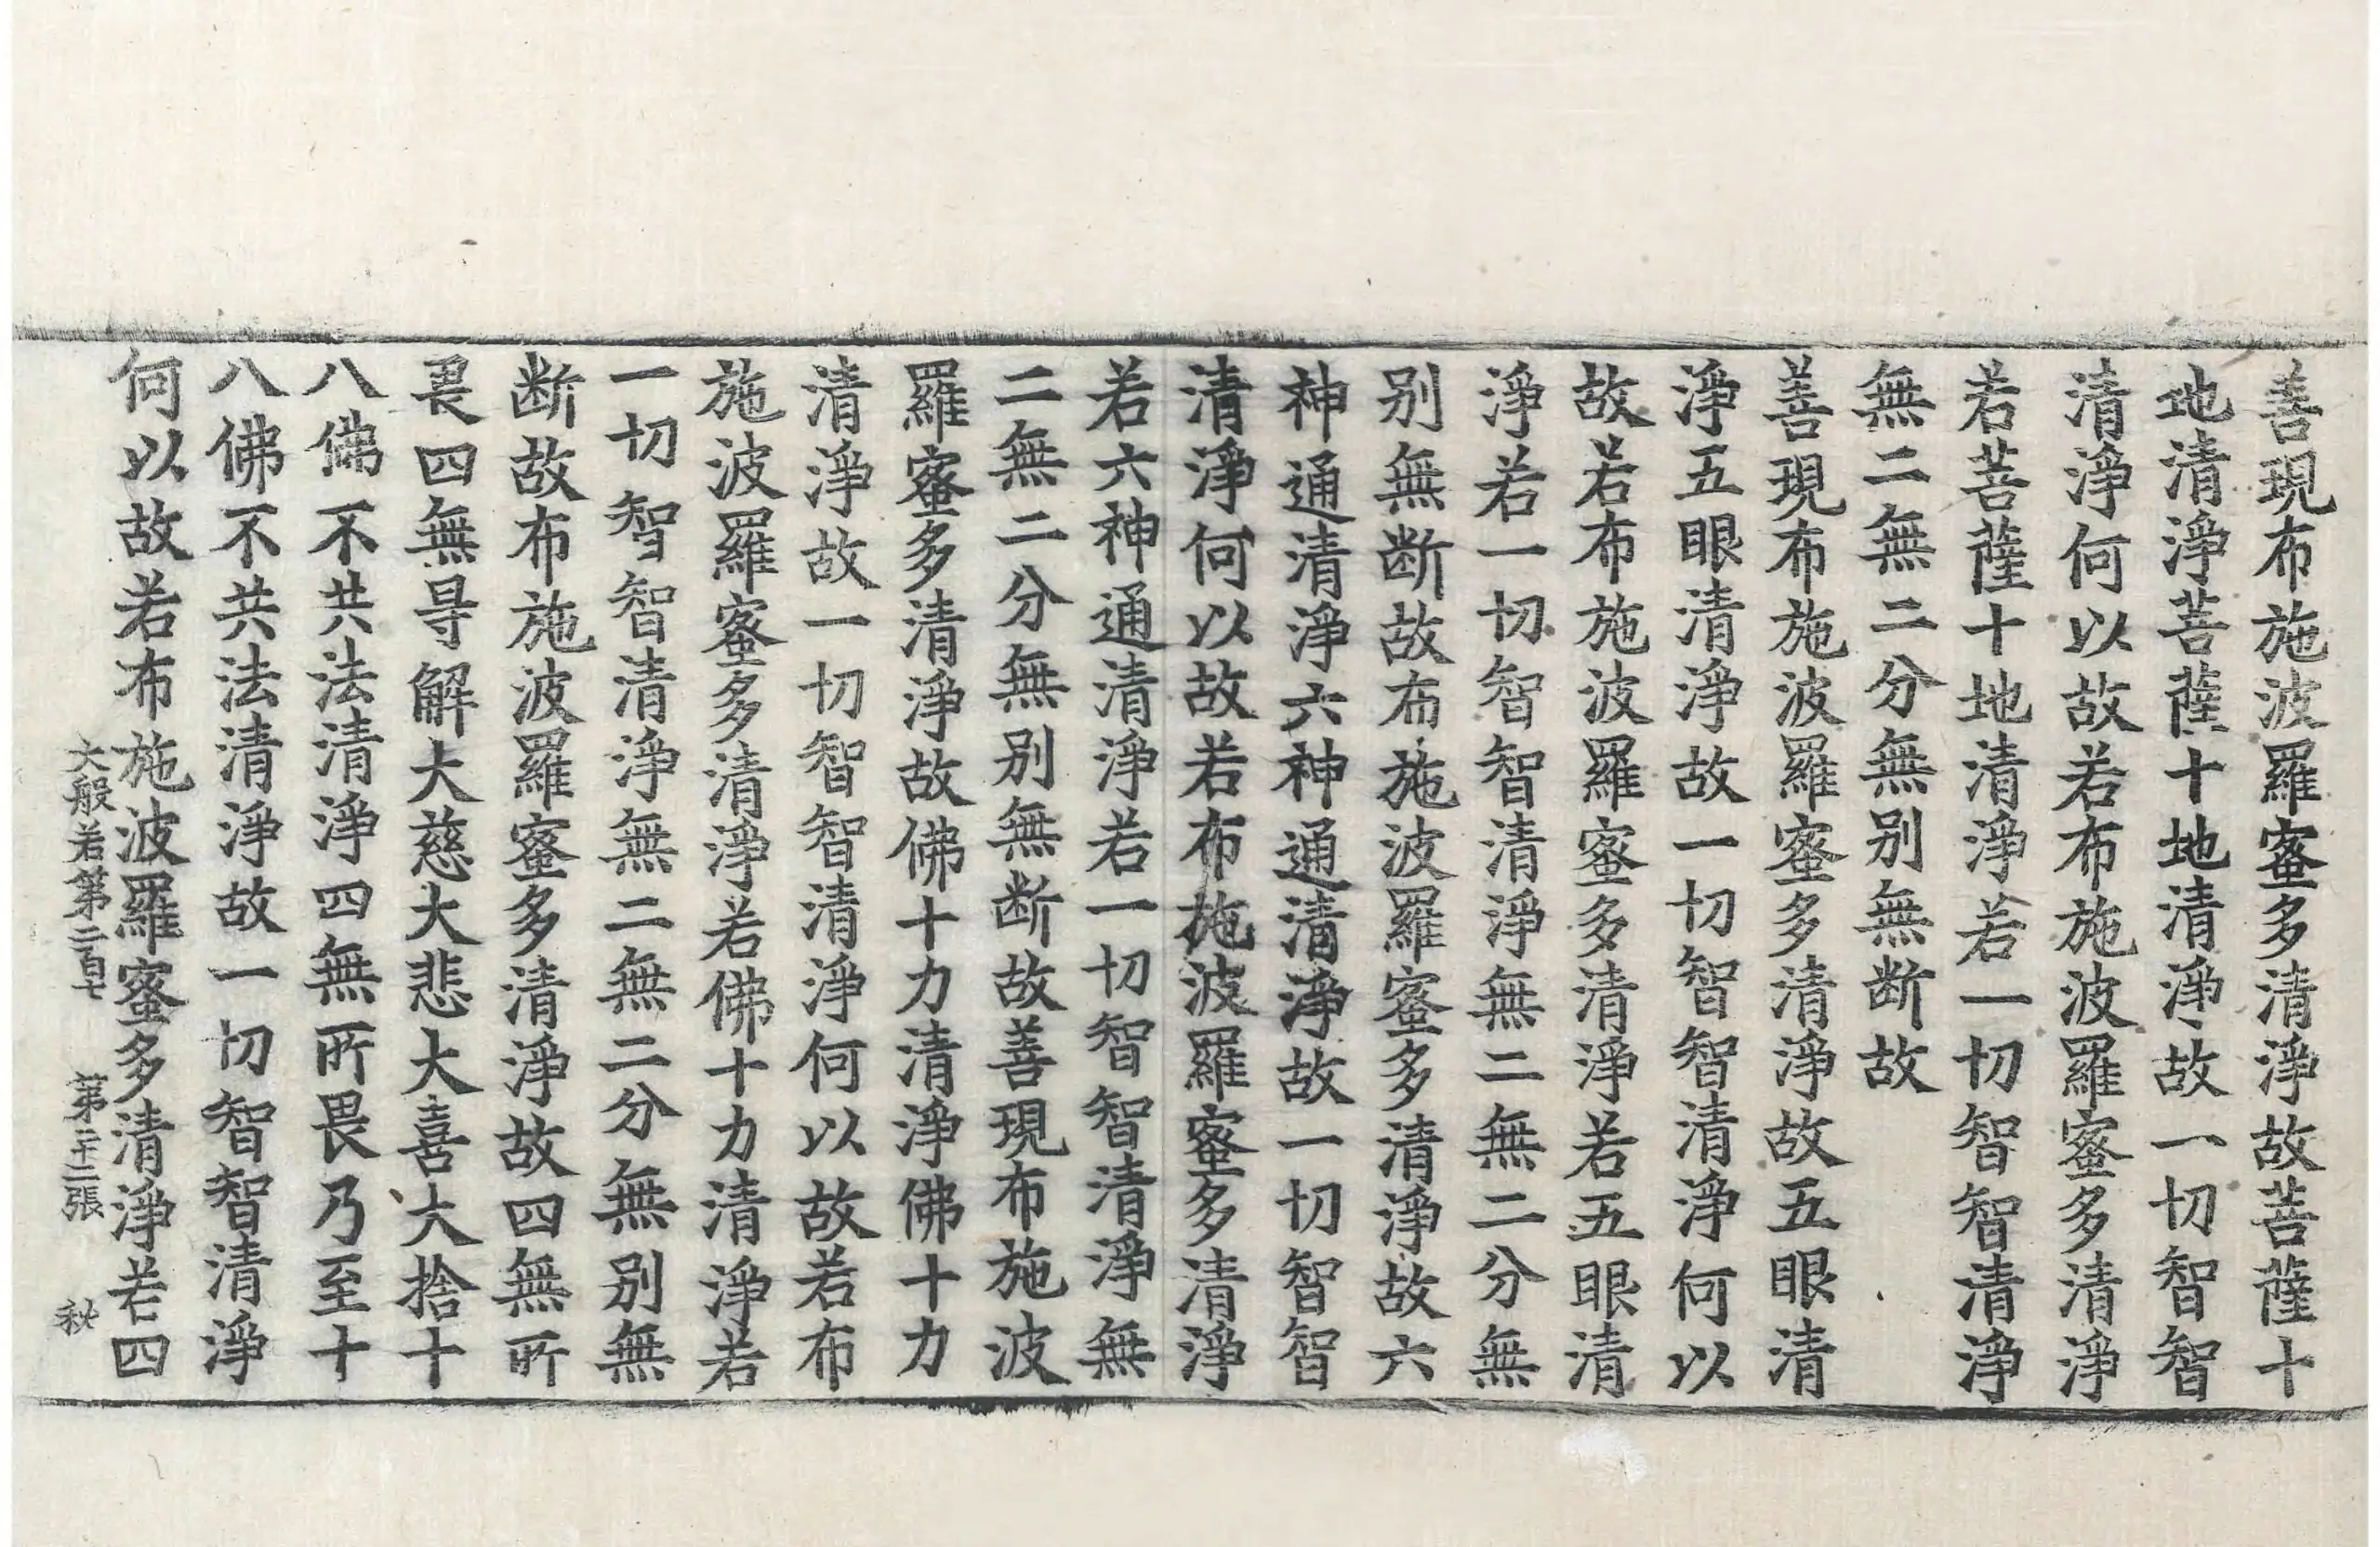 善現布施波羅蜜多清淨故菩薩十
地清淨菩薩十地清淨故一切智智
清淨何以故若布施波羅蜜多清淨
若菩薩十地清淨若一切智智清淨
無二無二分無別無断故
善現布施波羅蜜多清淨故五眼清
淨五眼清淨故一切智智清淨何以
故若布施波羅蜜多清淨若五眼清
淨若一切智智清淨無二無二分無
別無断故布施波羅蜜多清淨故六
神通清淨六神通清淨故一切智智
清淨何以故若布施波羅蜜多清淨
若六神通清淨若一切智智清淨無
二無二分無別無断故善現布施波
羅蜜多清淨故佛十力清淨佛十力
清淨故一切智智清淨何以故若布
施波羅蜜多清淨若佛十力清淨若
一切智智清淨無二無二分無別無
断故布施波羅蜜多清淨故四無所
畏四無㝵解大慈大悲大喜大捨十
八佛不共法清淨四無所畏乃至十
八佛不共法清淨故一切智智清淨
何以故若布施波羅蜜多清淨若四
大般若第二百七 第二十二張 秋